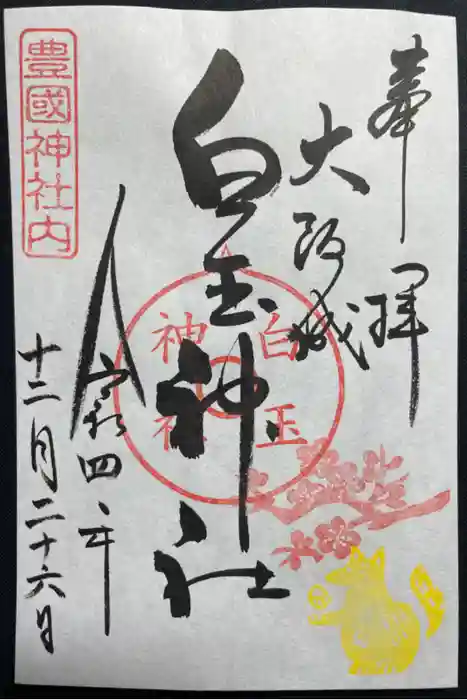 奉拝
大阪城
白玉神社
白玉
神社
豊國神社内
令和四年
十二月二十六日